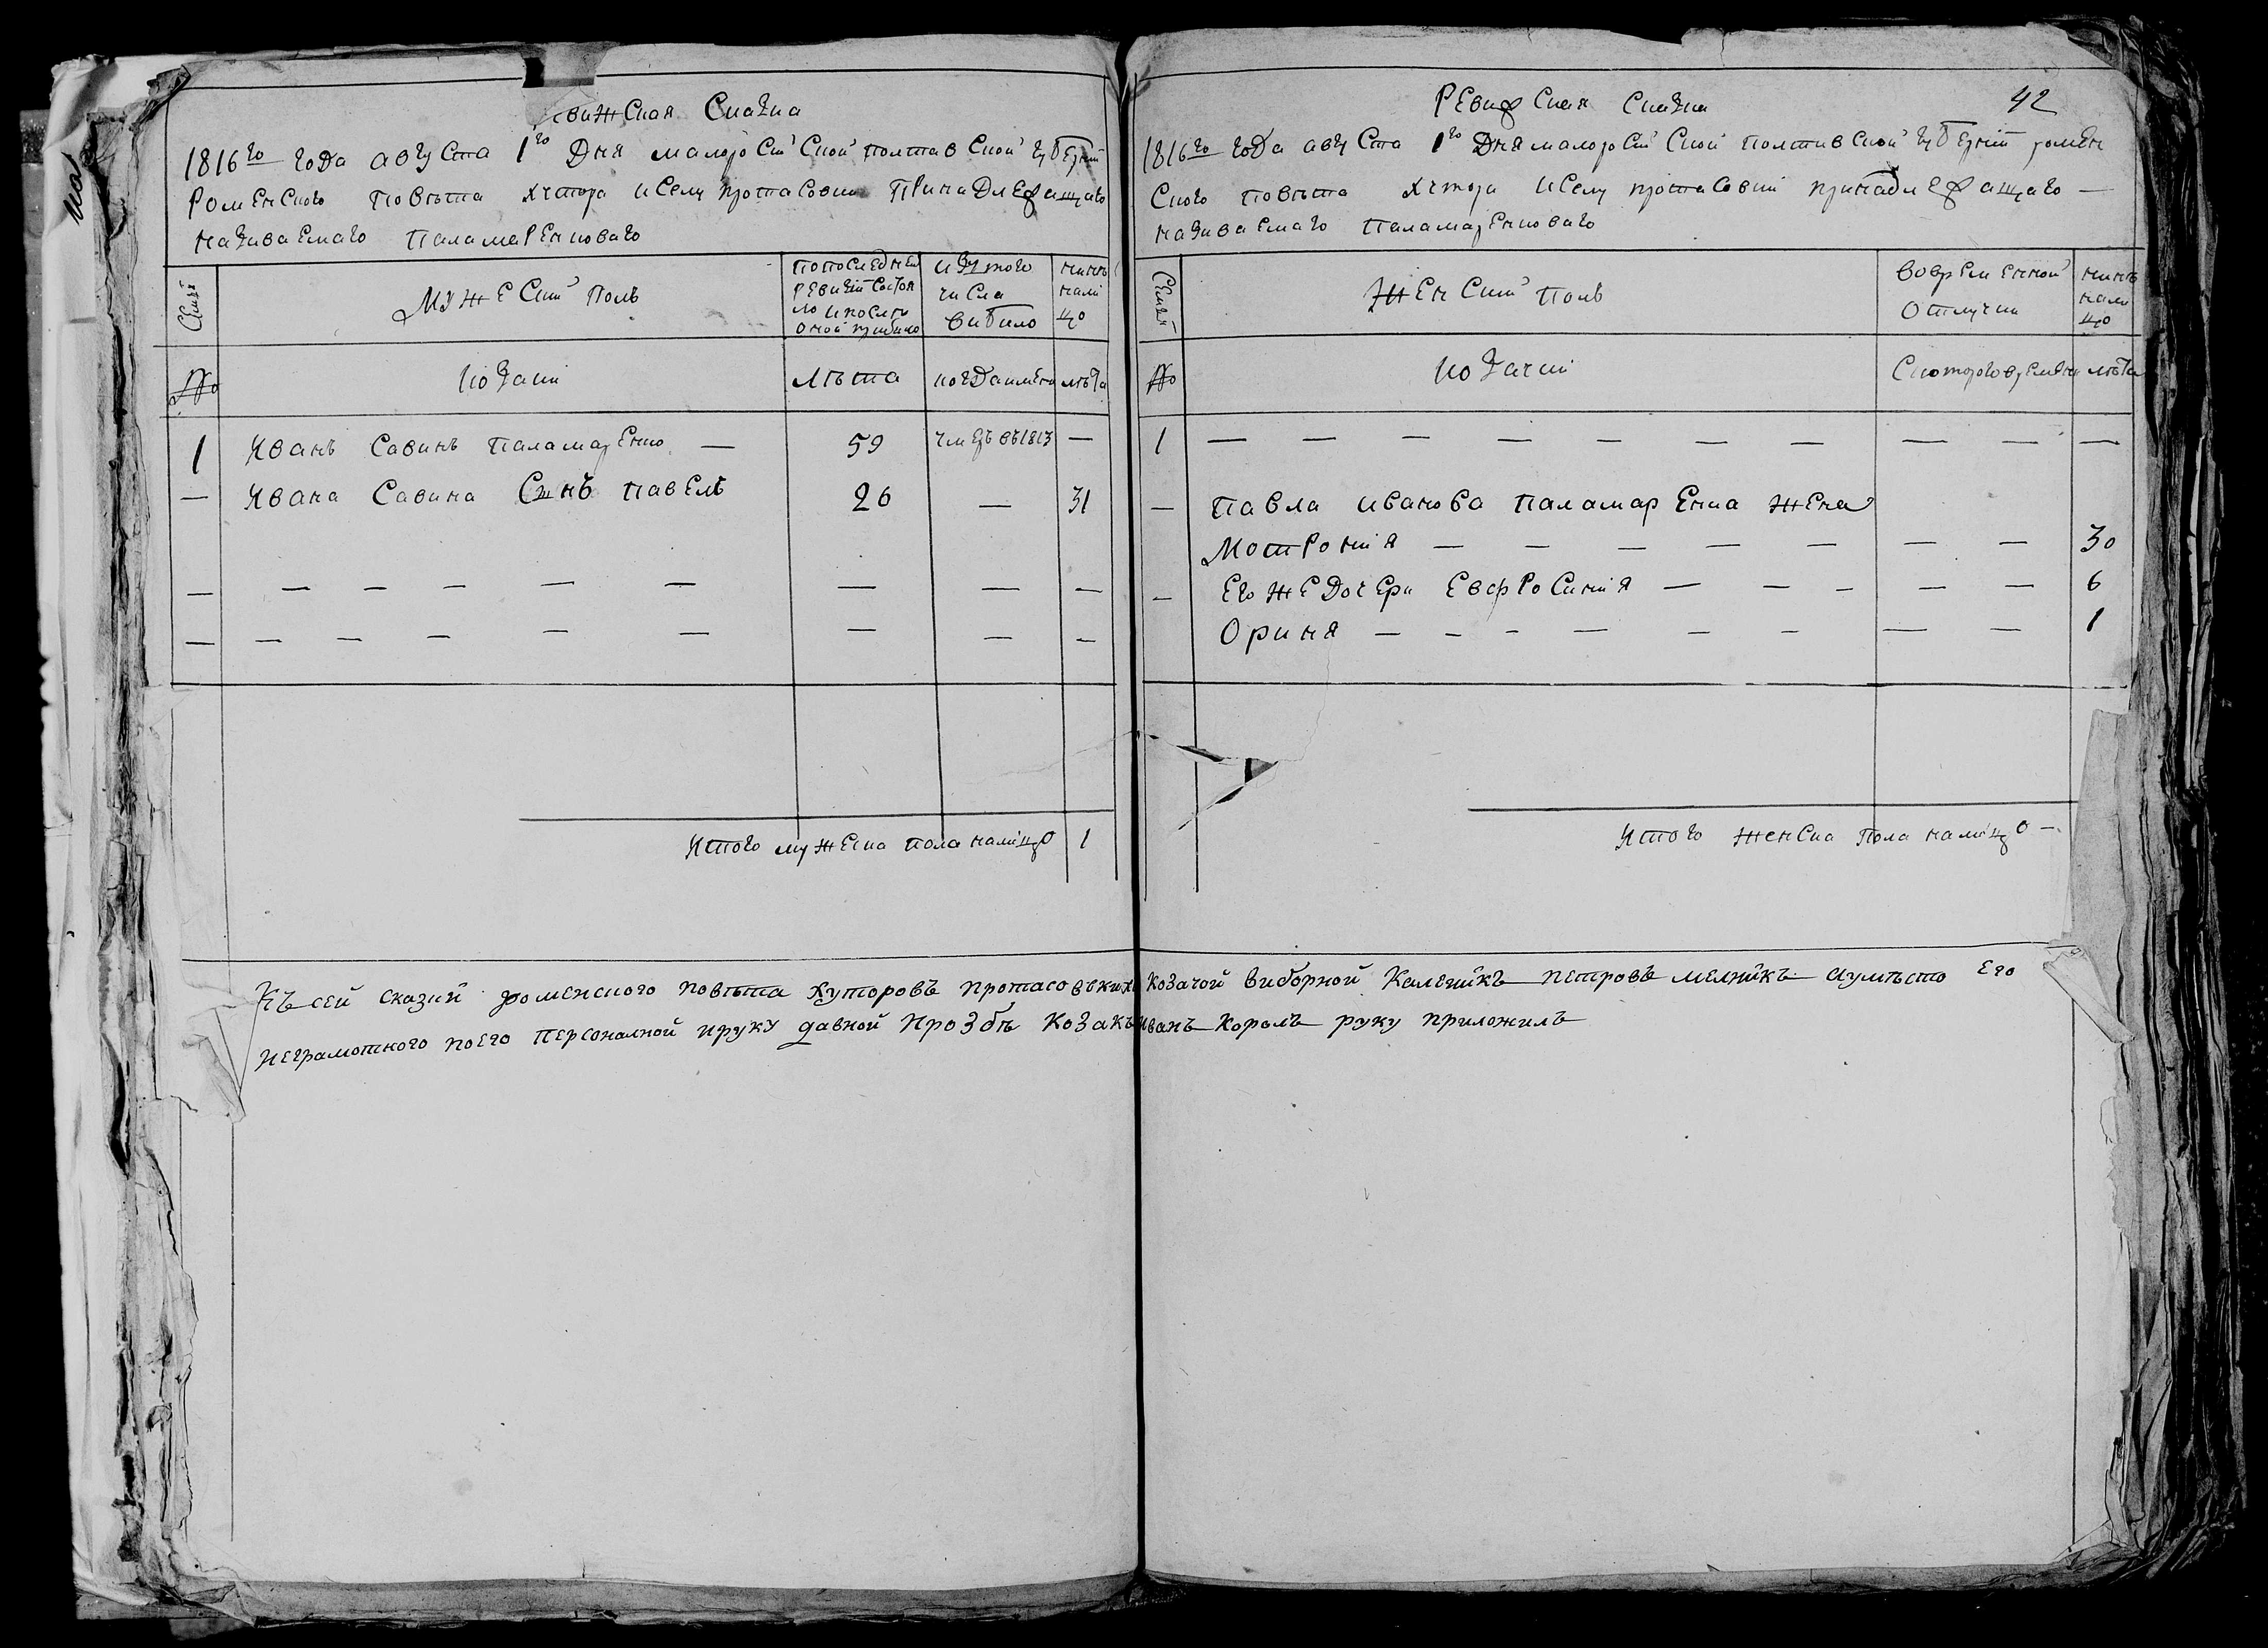 вижская сказка
1816го года августа 1го дня малоросійской полтавской губерніи
Роменского повѣта хутора к селу протасовки принадлежащаго
називаемаго паламаренкового
Семьи
мужескій полъ
по последней
ревизіи состоя
ло и после
оной прибило
из того
числа
вибило
нинѣ
нали
цо
№
козаки
лѣта
когда имено
лѣта
1 Иванъ Савинъ паламаренко — 59 умеръ въ 1813 —
— Ивана Савина Синъ павелъ 26 — 31
— — — — — — — — —
— — — — — — — — —
Итого мужеска пола налицо 1
Ревижская сказка 42
1816го года августа 1го дня малоросійской полтавской губерніи ромен
ского повѣта хутора к селу протасовки принадлежащаго —
називаемаго паламаренкового
Семьи
женскій полъ
во временной
отлучки
нинѣ
нали
цо
№
козачки
с которого времени
лѣта
1 — — — — — — — — — —
— павла иванова паламаренка жена
мотронія — — — — — — — 30
— его же дочери евфросинія — — — — — 6
Ориня — — — — — — — — 1
Итого женска пола налицо —
Къ сей сказки роменского повѣта хуторовъ протасовскихъ козачой виборной Каленикъ петровъ мелникъ а умѣсто его
неграмотного по его персоналной и руку давной прозбѣ козакъ иванъ король руку приложилъ